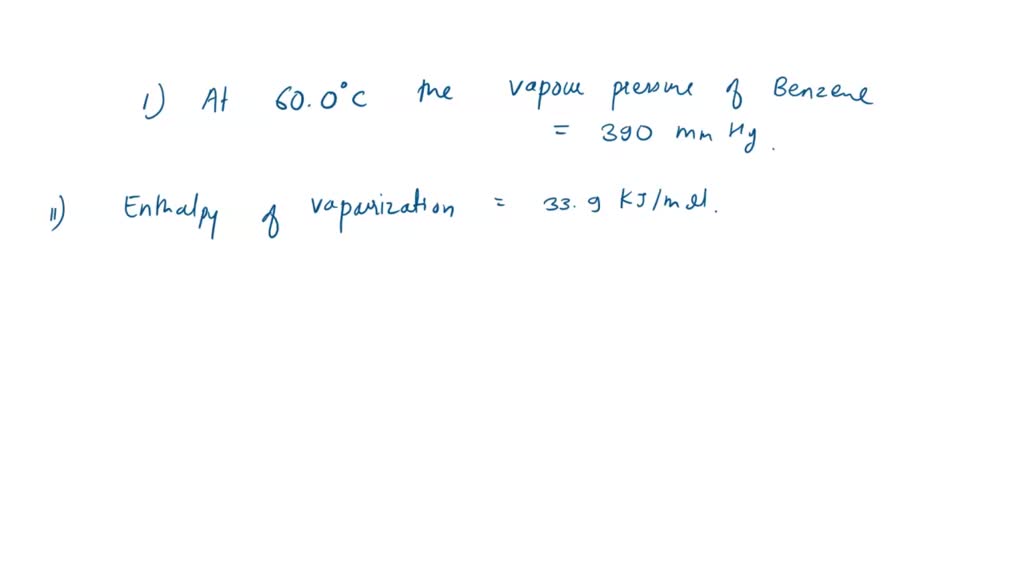 1) At 60.0°C the vapour pressure of Benzene
= 390 mm Hg.
11) Enthalpy of vaparization = 33.9 KJ/mol.